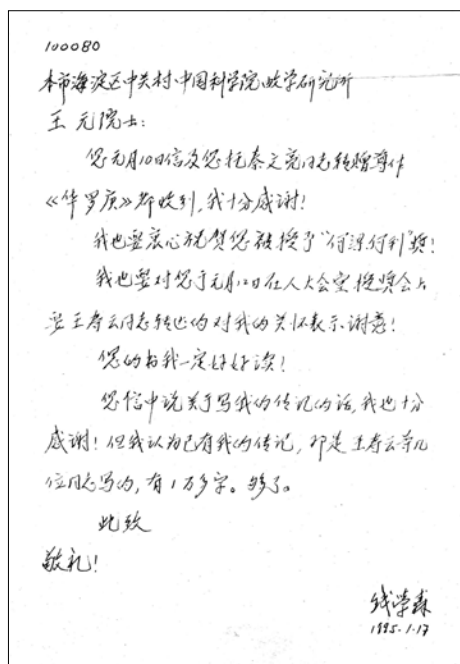 100080
本市海淀区中关村中国科学院数学研究所
王元院士：
您元月10日信及您托秦文亮同志转赠尊作
《华罗庚》都收到，我十分感谢！
我也要衷心祝贺您被授了“何梁何利”奖！
我也要对您于元月12日在人大会堂授奖会上
要王寿云同志转达的对我的关怀表示谢意！
您的书我一定好好读！
您信中说关于写我的传记的话，我也十分
感谢！但我认为已有我的传记，那是王寿云等几
位同志写的，有1万多字。够了。
此致
敬礼！
钱学森
1995.1.17